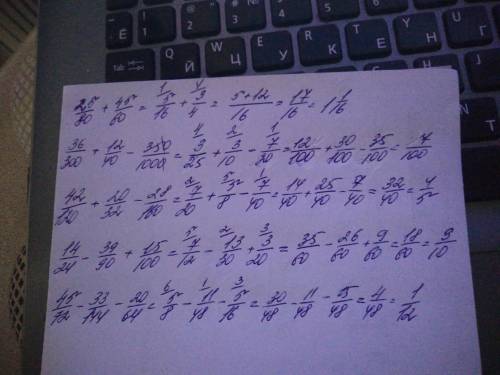 Ё 1 2 3 4 5 6 7 8
Й Ц У К Е Н Г Ш
25/80 + 45/60 = 5/16 + 3/4 = (5+12)/16 = 17/16 = 1 1/16
36/300 + 12/40 - 350/1000 = 3/25 + 3/10 - 7/20 = 12/100 + 30/100 - 35/100 = 7/100
42/120 + 20/32 - 28/160 = 7/20 + 5/8 - 7/40 = 14/40 + 25/40 - 7/40 = 32/40 = 4/5
14/24 - 39/90 + 15/100 = 7/12 - 13/30 + 3/20 = 35/60 - 26/60 + 9/60 = 18/60 = 9/10
45/72 - 33/144 - 20/64 = 5/8 - 11/48 - 5/16 = 30/48 - 11/48 - 15/48 = 4/48 = 1/12